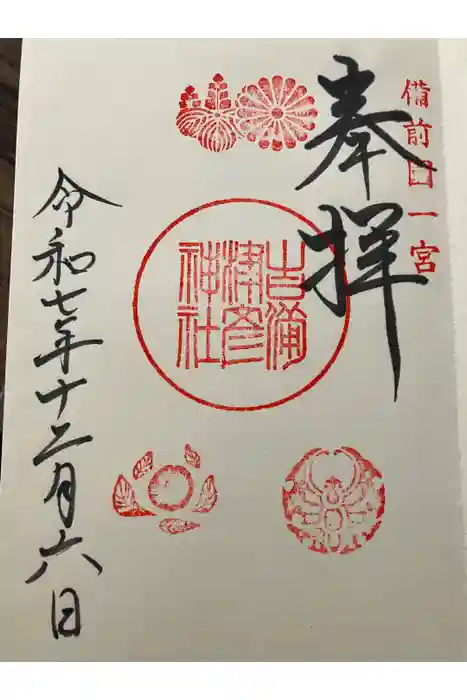 備前国一宮
奉拝
吉備
津彦
神社
令和七年十二月六日